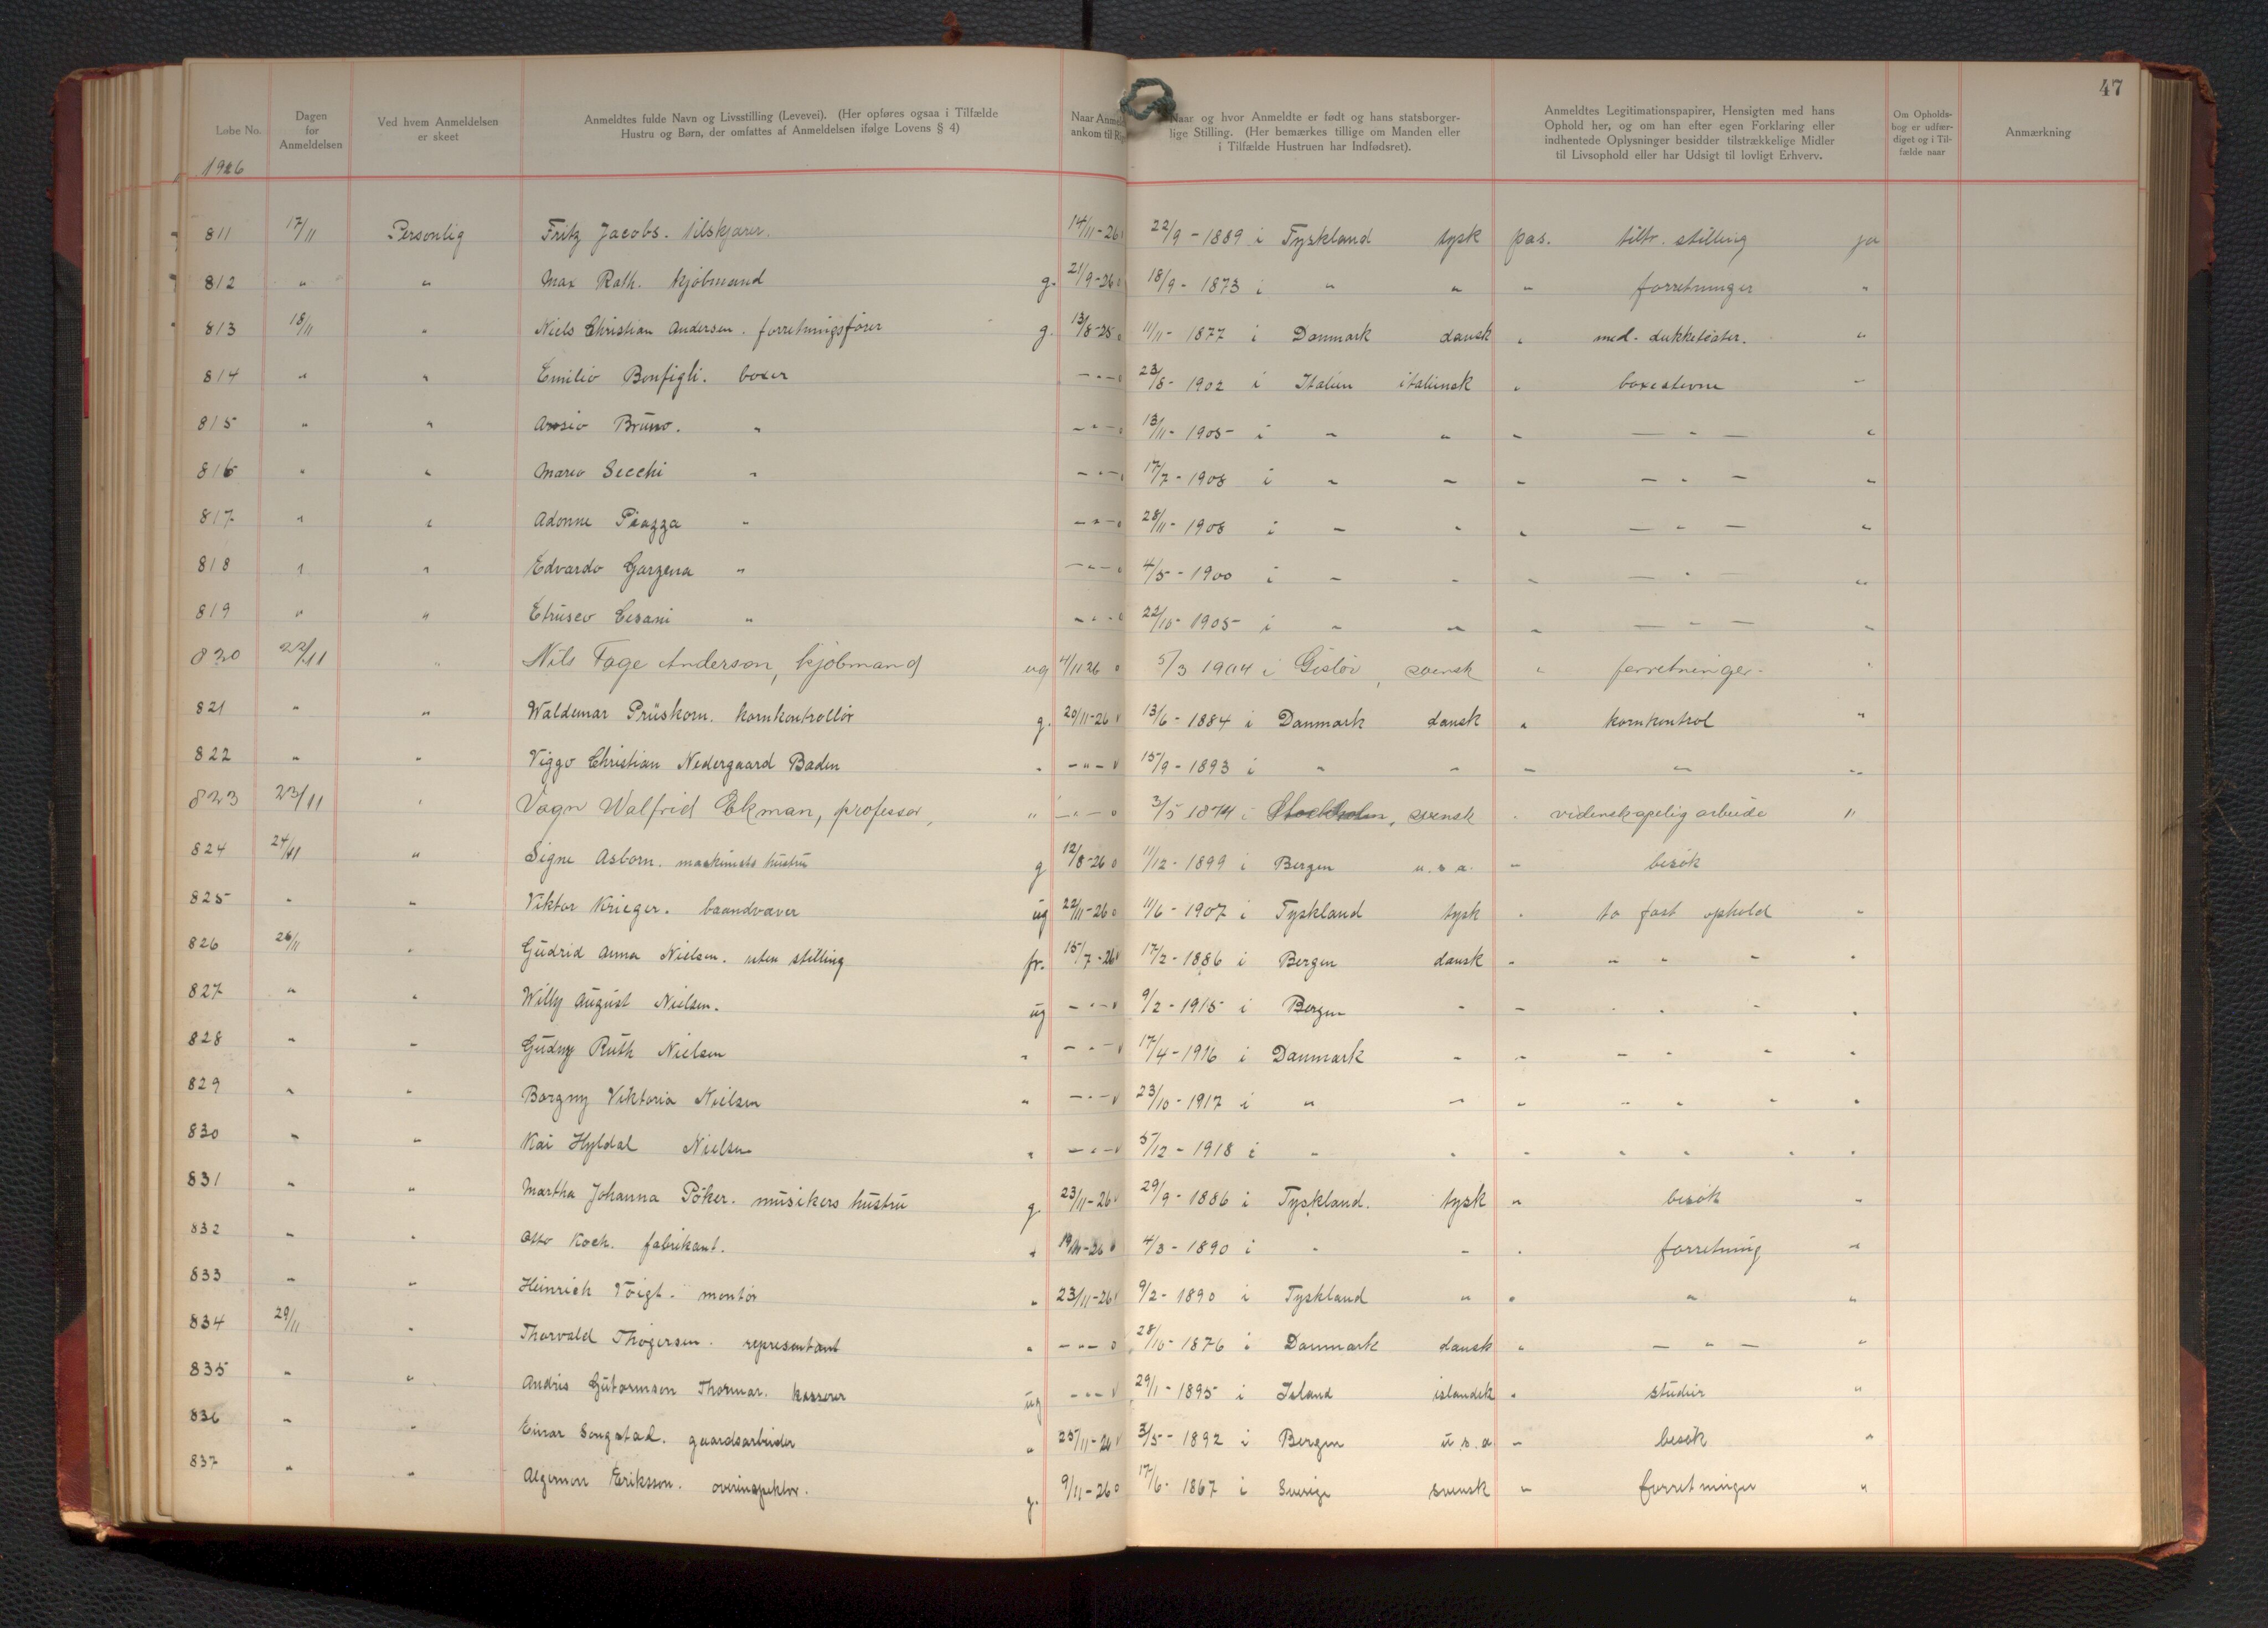 47
Løbe No.
Dagen for Anmeldelsen
Ved hvem Anmeldelsen er skeet
Anmeldtes fulde Navn og Livsstilling (Levevei). (Her opføres ogsaa i Tilfælde Hustru og Børn, der omfattes af Anmeldelsen ifølge Lovens § 4)
Naar Anmel ankom til Ri
Naar og hvor Anmeldte er født og hans statsborgerlige Stilling. (Her bemærkes tillige om Manden eller i Tilfælde Hustruen har Indfødsret).
Anmeldtes Legitimationspapirer, Hensigten med hans Ophold her, og om han efter egen Forklaring eller indhentede Oplysninger besidder tilstrækkelige Midler til Livsophold eller har Udsigt til lovligt Erhverv.
Om Opholdsbog er udfærdiget og i Tilfælde naar
Anmærkning
1926
811 17/11 Personlig Fritz Jacobs. tilskjærer. 14/11-26 22/9-1889 i Tyskland tysk pas. tiltr. stilling ja
812 " " Max Rath. kjøbmand g. 21/9-26 18/9-1873 i " " " forretninger "
813 18/11 " Niels Christian Andersen. forretningsfører g. 13/8-25 11/11-1877 i Danmark dansk " med dukketeater. "
814 " " Emilio Bonfigli. boxer -"- 23/8-1902 i Italien italiensk " boxestevne "
815 " " Bruno. " -"- 13/11-1905 i " " " -"- "
816 " " Mario Secchi " -"- 17/7-1908 i " " " -"- "
817 " " Adonne Piazza " -"- 28/11-1908 i " " " -"- "
818 " " Edvardo Garzena " -"- 4/5-1900 i " " " -"- "
819 " " Cesani " -"- 22/10-1905 i " " " -"- "
820 22/11 " Nils Tage Anderson, kjøbmand ug 4/11 26 5/3 1904 i Gisløv, svensk " forretninger "
821 " " Waldemar Prüskorn. kornkontrollør g. 20/11-26 13/6-1884 i Danmark dansk " kornkontrol "
822 " " Viggo Christian Nedergaard Baden " -"- 15/9-1893 i " " " " "
823 23/11 " Vagn Walfrid Ekman, professor, " -"- 3/5 1874 i Stockholm, svensk " videnskapelig arbeide "
824 24/11 " Signe Asborn. maskinists hustru g 12/8-26 11/12-1899 i Bergen u.s.a. " besøk
825 " " Viktor Krieger. baandvæver ug 22/11-26 11/6-1907 i Tyskland tysk " ta fast ophold "
826 26/11 " Gudrid Anna Nielsen. uten stilling fr. 15/7-26 17/2-1886 i Bergen dansk " " " " "
827 " " Willy August Nielsen. ug -"- 9/2-1915 i Bergen " " " " " "
828 " " Gudny Ruth Nielsen " -"- 17/4-1916 i Danmark " " " " " "
829 " " Borgny Viktoria Nielsen " -"- 23/10-1917 i " " " " " " "
830 " " Kai Hyldal Nielsen " -"- 5/12-1918 i " " " " " " "
831 " " Martha Johanna Pöker. musikers hustru g 23/11-26 29/9-1886 i Tyskland. tysk " besøk "
832 " " Otto Koch. fabrikant. " 19/11-26 4/3-1890 i " " " forretning "
833 " " Heinrich Voigt. montør " 23/11-26 9/2-1890 i Tyskland " " " "
834 29/11 " Thorvald Thøgersen. representant " -"- 28/10-1876 i Danmark dansk " -"- "
835 " " Andres Gutormson Thormar. kasserer ug -"- 29/1-1895 i Island islandsk " studier "
836 " " Einar Songstad. gaardsarbeider " 25/11-26 3/5-1892 i Bergen u.s.a " besøk "
837 " " Algernon Eriksson. overinspektør. g. 9/11-26 17/6-1867 i Sverige svensk " forretninger "